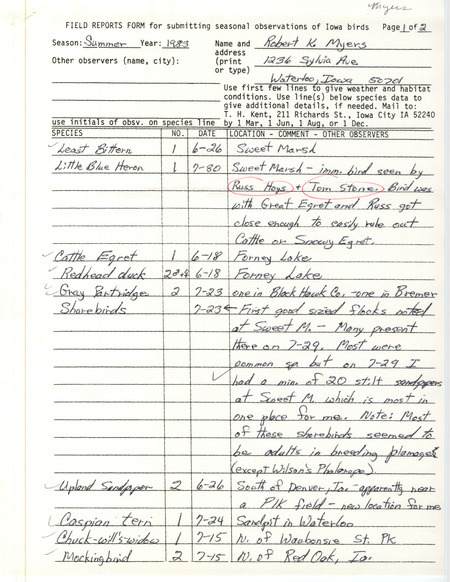 Myers
FIELD REPORTS FORM for submitting seasonal observations of Iowa birds Page 1 of 2
Season: Summer Year: 1983 Name and Robert K. Myers
Other observers (name, city): address 1236 Sylvia Ave.
(print
or type) Waterloo, Iowa 50701
Use first few lines to give weather and habitat
conditions. Use line(s) below species data to
give additional details, if needed. Mail to:
T. H. Kent, 211 Richards St., Iowa City IA 52240
use initials of obsv. on species line by 1 Mar, 1 Jun, 1 Aug, or 1 Dec.
SPECIES NO. DATE LOCATION - COMMENT - OTHER OBSERVERS
Least Bittern 1 6-26 Sweet Marsh
Little Blue Heron 1 7-30 Sweet Marsh - imm. bird seen by
Russ Hays + Tom Stone. Bird was
with Great Egret and Russ got
close enough to easily rule out
Cattle or Snowy Egret.
Cattle Egret 1 6-18 Forney Lake
Redhead duck 2♂ 6-18 Forney Lake
Gray Partridge 2 7-23 one in Black Hawk Co. - one in Bremer
Shorebirds 7-23 ← First good sized flocks noted
at Sweet M. - Many present
there on 7-29. Most were
common sp. but on 7-29 I
had a min. of 20 stilt sandpapers
at Sweet M. which is most in
one place for me. Note: Most
of these shorebirds seemed to
be adults in breeding plumage
(except Wilson's Phalarope)
Upland Sandpiper 2 6-26 South of Denver, Ia. - apparently near
a PIK field - new location for me
Caspian tern 1 7-24 Sandpit in Waterloo
Chuck-will's-widow 1 7-15 N. of Waubonsie St. Pk
Mockingbird 2 7-15 N. of Red Oak, Ia.